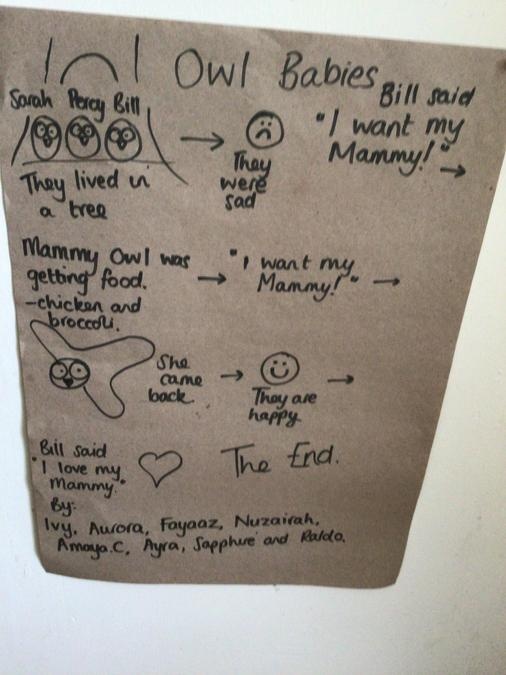 Owl Babies
Sarah Percy Bill
They lived in
a tree
They
were
sad
Bill said
"I want my
Mammy!"
Mammy Owl was
getting food.
-chicken and
broccoli.
"I want my
Mammy!"
She
came
back.
They are
happy
Bill said
"I love my
Mammy."
The End.
By:
Ivy, Aurora, Fayaaz, Nuzairah,
Amaya.C, Ayra, Sapphire and